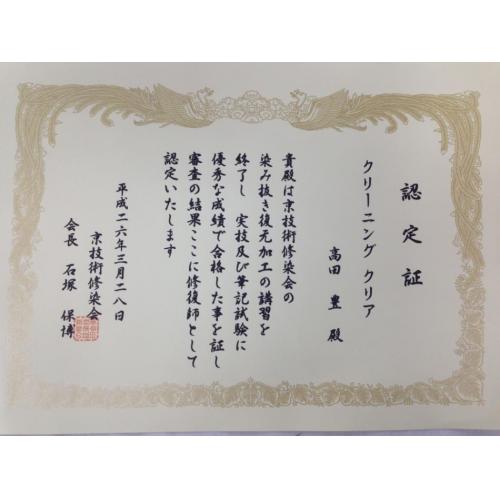 認定証
クリーニング クリア
高田 豊 殿
貴殿は京技術修染会の
染み抜き復元加工の講習を
終了し 実技及び筆記試験に
優秀な成績で合格した事を証し
審査の結果ここに修復師として
認定いたします
平成二六年三月二八日
京技術修染会
会長 石塚 保博